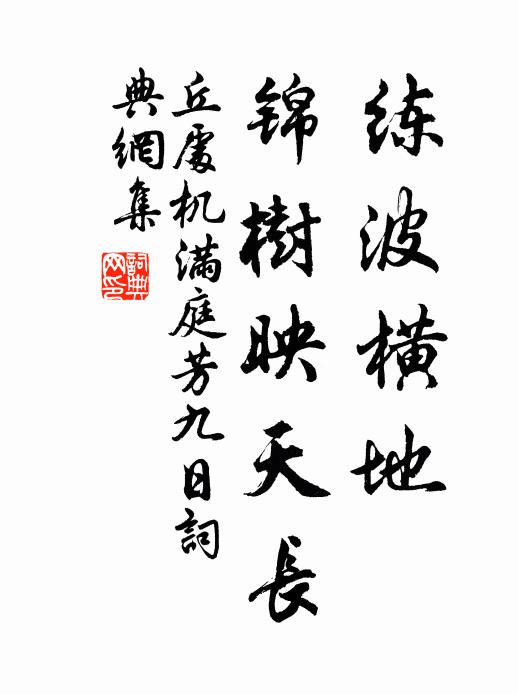 练波横地
锦樹映天長
丘處机满庭芳九日詞
典網集
詞典网印